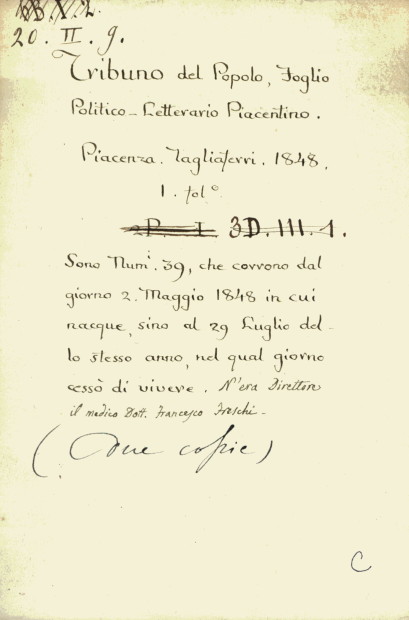 20. II. 9.
Tribuno del Popolo, Foglio
Politico-Letterario Piacentino.
Piacenza. Tagliaferri. 1848.
1. fol.º
3D. III. 1.
Sono Num.i 39, che corrono dal
giorno 2. Maggio 1848 in cui
nacque, sino al 29 Luglio del-
lo stesso anno, nel qual giorno
cessò di vivere. N'era Direttore
il medico Dott. Francesco Freschi-
(Due copie)
C